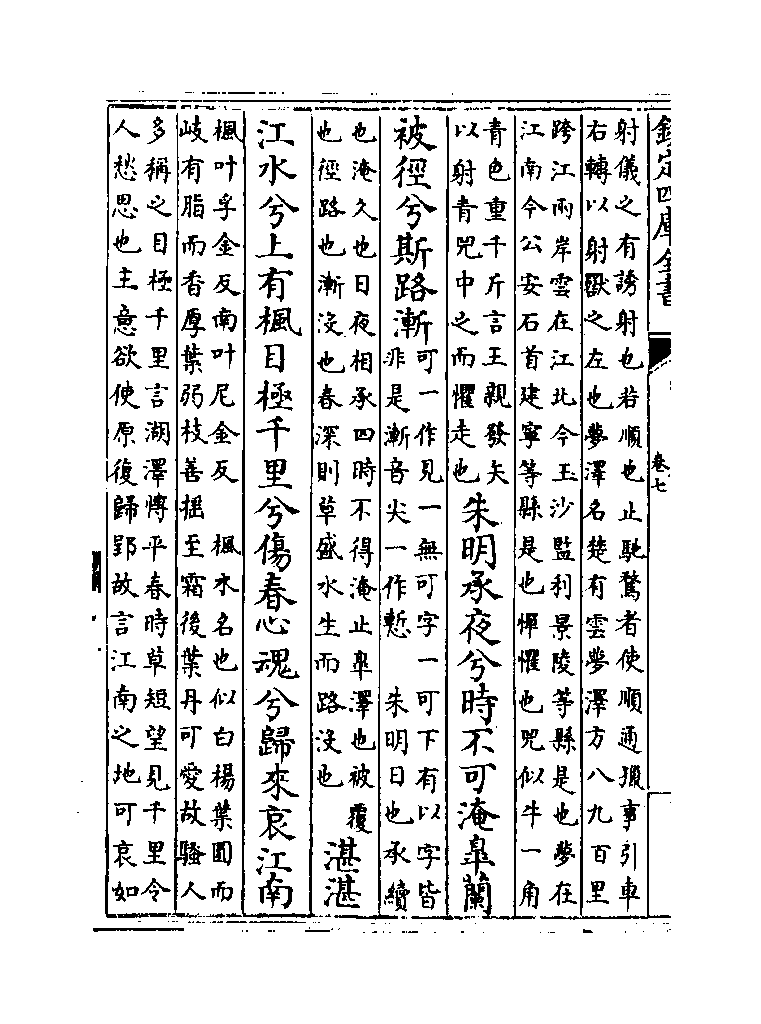 欽定四庫全書
卷七
射儀之有誘射也若順也止馳騖者使順通獵事引車
右轉以射獸之左也夢澤名楚有雲夢澤方八九百里
跨江兩岸雲在江北今玉沙監利景陵等縣是也夢在
江南今公安石首建寧等縣是也憚懼也兕似牛一角
青色重千斤言王親發矢
以射青兕中之而懼走也
朱明承夜兮時不可淹臯蘭
被徑兮斯路漸
可一作見一無可字一可下有以字皆
非是漸音尖一作慙 朱明日也承續
也淹久也日夜相承四時不得淹止臯澤也被覆
也徑路也漸沒也春深則草盛水生而路沒也
湛湛
江水兮上有楓目極千里兮傷春心魂兮歸來哀江南
楓叶孚金反南叶尼金反 楓木名也似白楊葉圓而
岐有脂而香厚葉弱枝善揺至霜後葉丹可愛故騷人
多稱之目極千里言湖澤博平春時草短望見千里令
人愁思也主意欲使原復歸郢故言江南之地可哀如